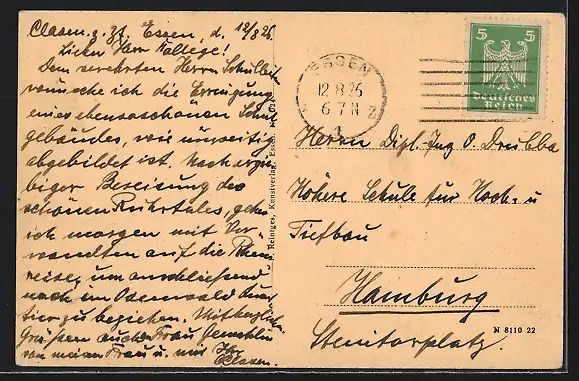 Clasen, z. Zt. Essen, d. 12/8 26.
Lieber Herr Kollege!
Dem verehrten Herrn Schulleit
wünsche ich die Erringung
eines ebensoschönen Schul
gebäudes, wie umseitig
abgebildet ist. Nach ergie
biger Bereisung des
schönen Ruhrtales, gehe
ich morgen mit Ver
wandten auf die Rhein
reise, um anschließend
noch im Odenwald Quar
tier zu beziehen. Mit herzlichen
Grüßen auch an Frau Gemahlin
von meiner Frau u. mir Ihr
Clasen.
F. Reintges, Kunstverlag, Essen.
ESSEN
12.8.26
6-7 N
1
5 5
Deutsches
Reich
Herrn Dipl. Ing O. Drubba
Höhere Schule für Hoch- u
Tiefbau
Hamburg
Steintorplatz.
N 8110 22